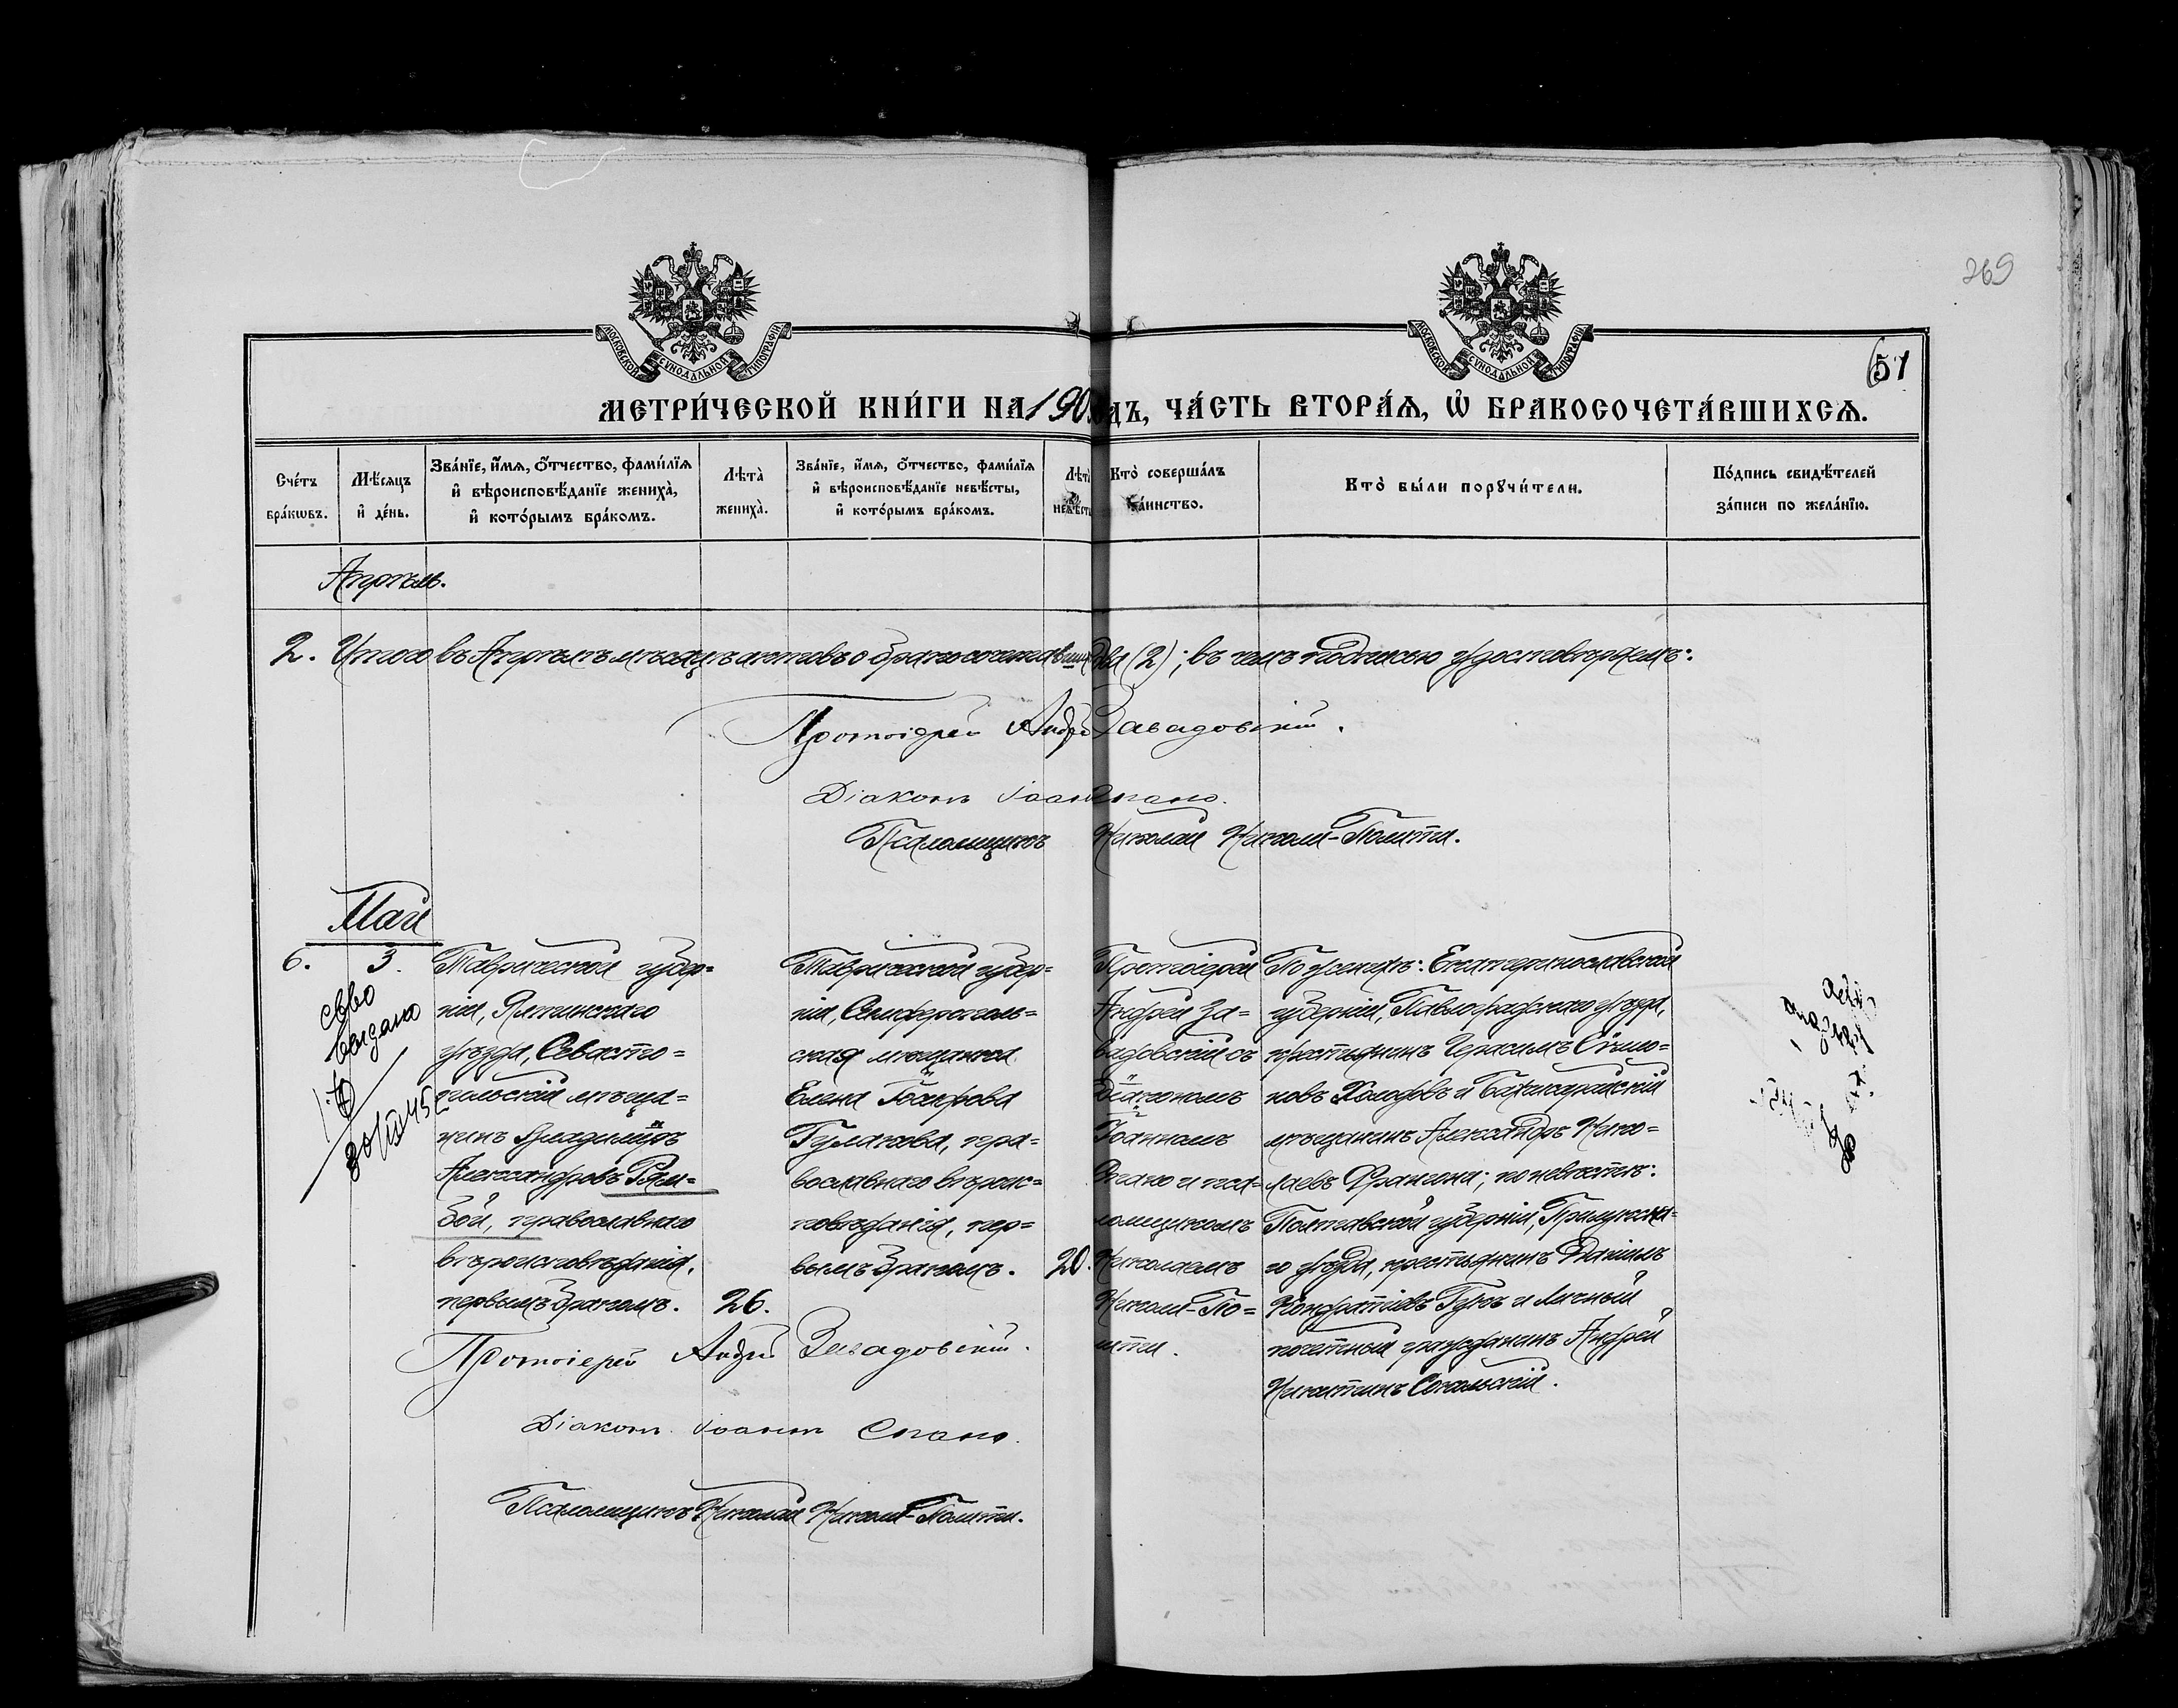 269
51
МОСКОВСКОЙ СУНОДАЛЬНОЙ ТИПОГРАФІИ
МОСКОВСКОЙ СУНОДАЛЬНОЙ ТИПОГРАФІИ
МЕТРИ́ЧЕСКОЙ КНИ́ГИ НА 190 ДЪ, ЧА́СТЬ ВТОРА́Я, Ѡ҆ БРАКОСОЧЕТА́ВШИХСЯ.
Сче́тъ бра́кѡвъ.
Мѣ́сяцъ и҆ де́нь.
Зва́нїе, и҆́мя, ѻ҆́тчество, фами́лїя и҆ вѣроисповѣ́данїе жениха̀, и҆ кото́рымъ бра́комъ.
Лѣта̀ жениха̀.
Зва́нїе, и҆́мя, ѻ҆́тчество, фами́лїя и҆ вѣроисповѣ́данїе невѣ́сты, и҆ кото́рымъ бра́комъ.
Лѣта̀ невѣсты
Кто̀ соверша́лъ та́инство.
Кто̀ бы́ли порꙋчи́тели.
По́дпись свидѣ́телей за́писи по жела́нїю.
Апрѣль.
2. Итого въ Апрѣлѣ мѣсяцѣ актовъ о бракосочетавших два (2); въ чемъ подписью удостовѣряемъ:
Протоіерей Андрей Завадовскій.
Діаконъ Іоаннъ Спано.
Псаломщикъ Николай Николи-Полити.
Май
6. 3.
Таврической губер=
ніи, Ялтинскаго
уѣзда, Севасто=
польскій мѣща=
нинъ Владиміръ
Александровъ Рям=
бой, православнаго
вѣроисповѣданія,
первымъ бракомъ. 26.
Таврической губер=
ніи, Симферополь=
ская мѣщанка
Елена
Гулакова, пра=
вославнаго вѣроис=
повѣданія, пер=
вымъ бракомъ. 20.
Протоіерей
Андрей За=
вадовскій съ
діакономъ
Іоанномъ
Спано и пса=
ломщикомъ
Николаемъ
Николи-По=
лити.
По женихѣ: Екатеринославской
губерніи, Павлоградскаго уѣзда,
крестьянинъ Герасимъ Симо=
новъ Холодовъ и Бахчисарайскій
мѣщанинъ Александръ Нико=
лаевъ Франгопи; по невѣстѣ:
Полтавской губерніи, Прилукска=
го уѣзда, крестьянинъ Даніилъ
Кондратіевъ Гужъ и личный
почетный гражданинъ Андрей
Никитинъ Сокальскій.
св-во
выдано
Протоіерей Андрей Завадовскій.
Діаконъ Іоаннъ Спано.
Псаломщикъ Николай Николи-Полити.